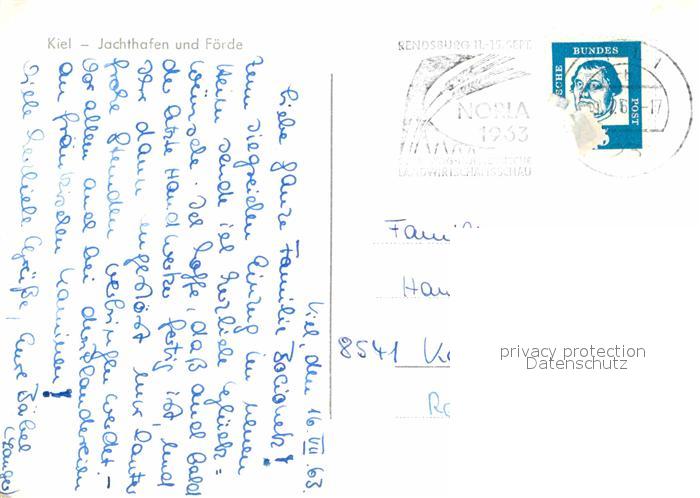 Kiel – Jachthafen und Förde
RENDSBURG 11.-15. SEPT.
NORLA
1963
LANDWIRTSCHAFTSSCHAU
BUNDES
POST
-17
Kiel, den 16. VII. 63.
Liebe ganze Familie
zum siegreichen Einzug im neuen
Heim sende ich herzliche Glück=
wünsche. Ich hoffe, daß auch bald
der letzte Handwerker fertig ist, und
Ihr dann ungestört nur lauter
frohe Stunden verbringen werdet. –
Vor allem auch bei
am fränkischen Kaminen!
Viele herzliche Grüße, Eure
Fami
Han
8541 K
privacy protection
Datenschutz